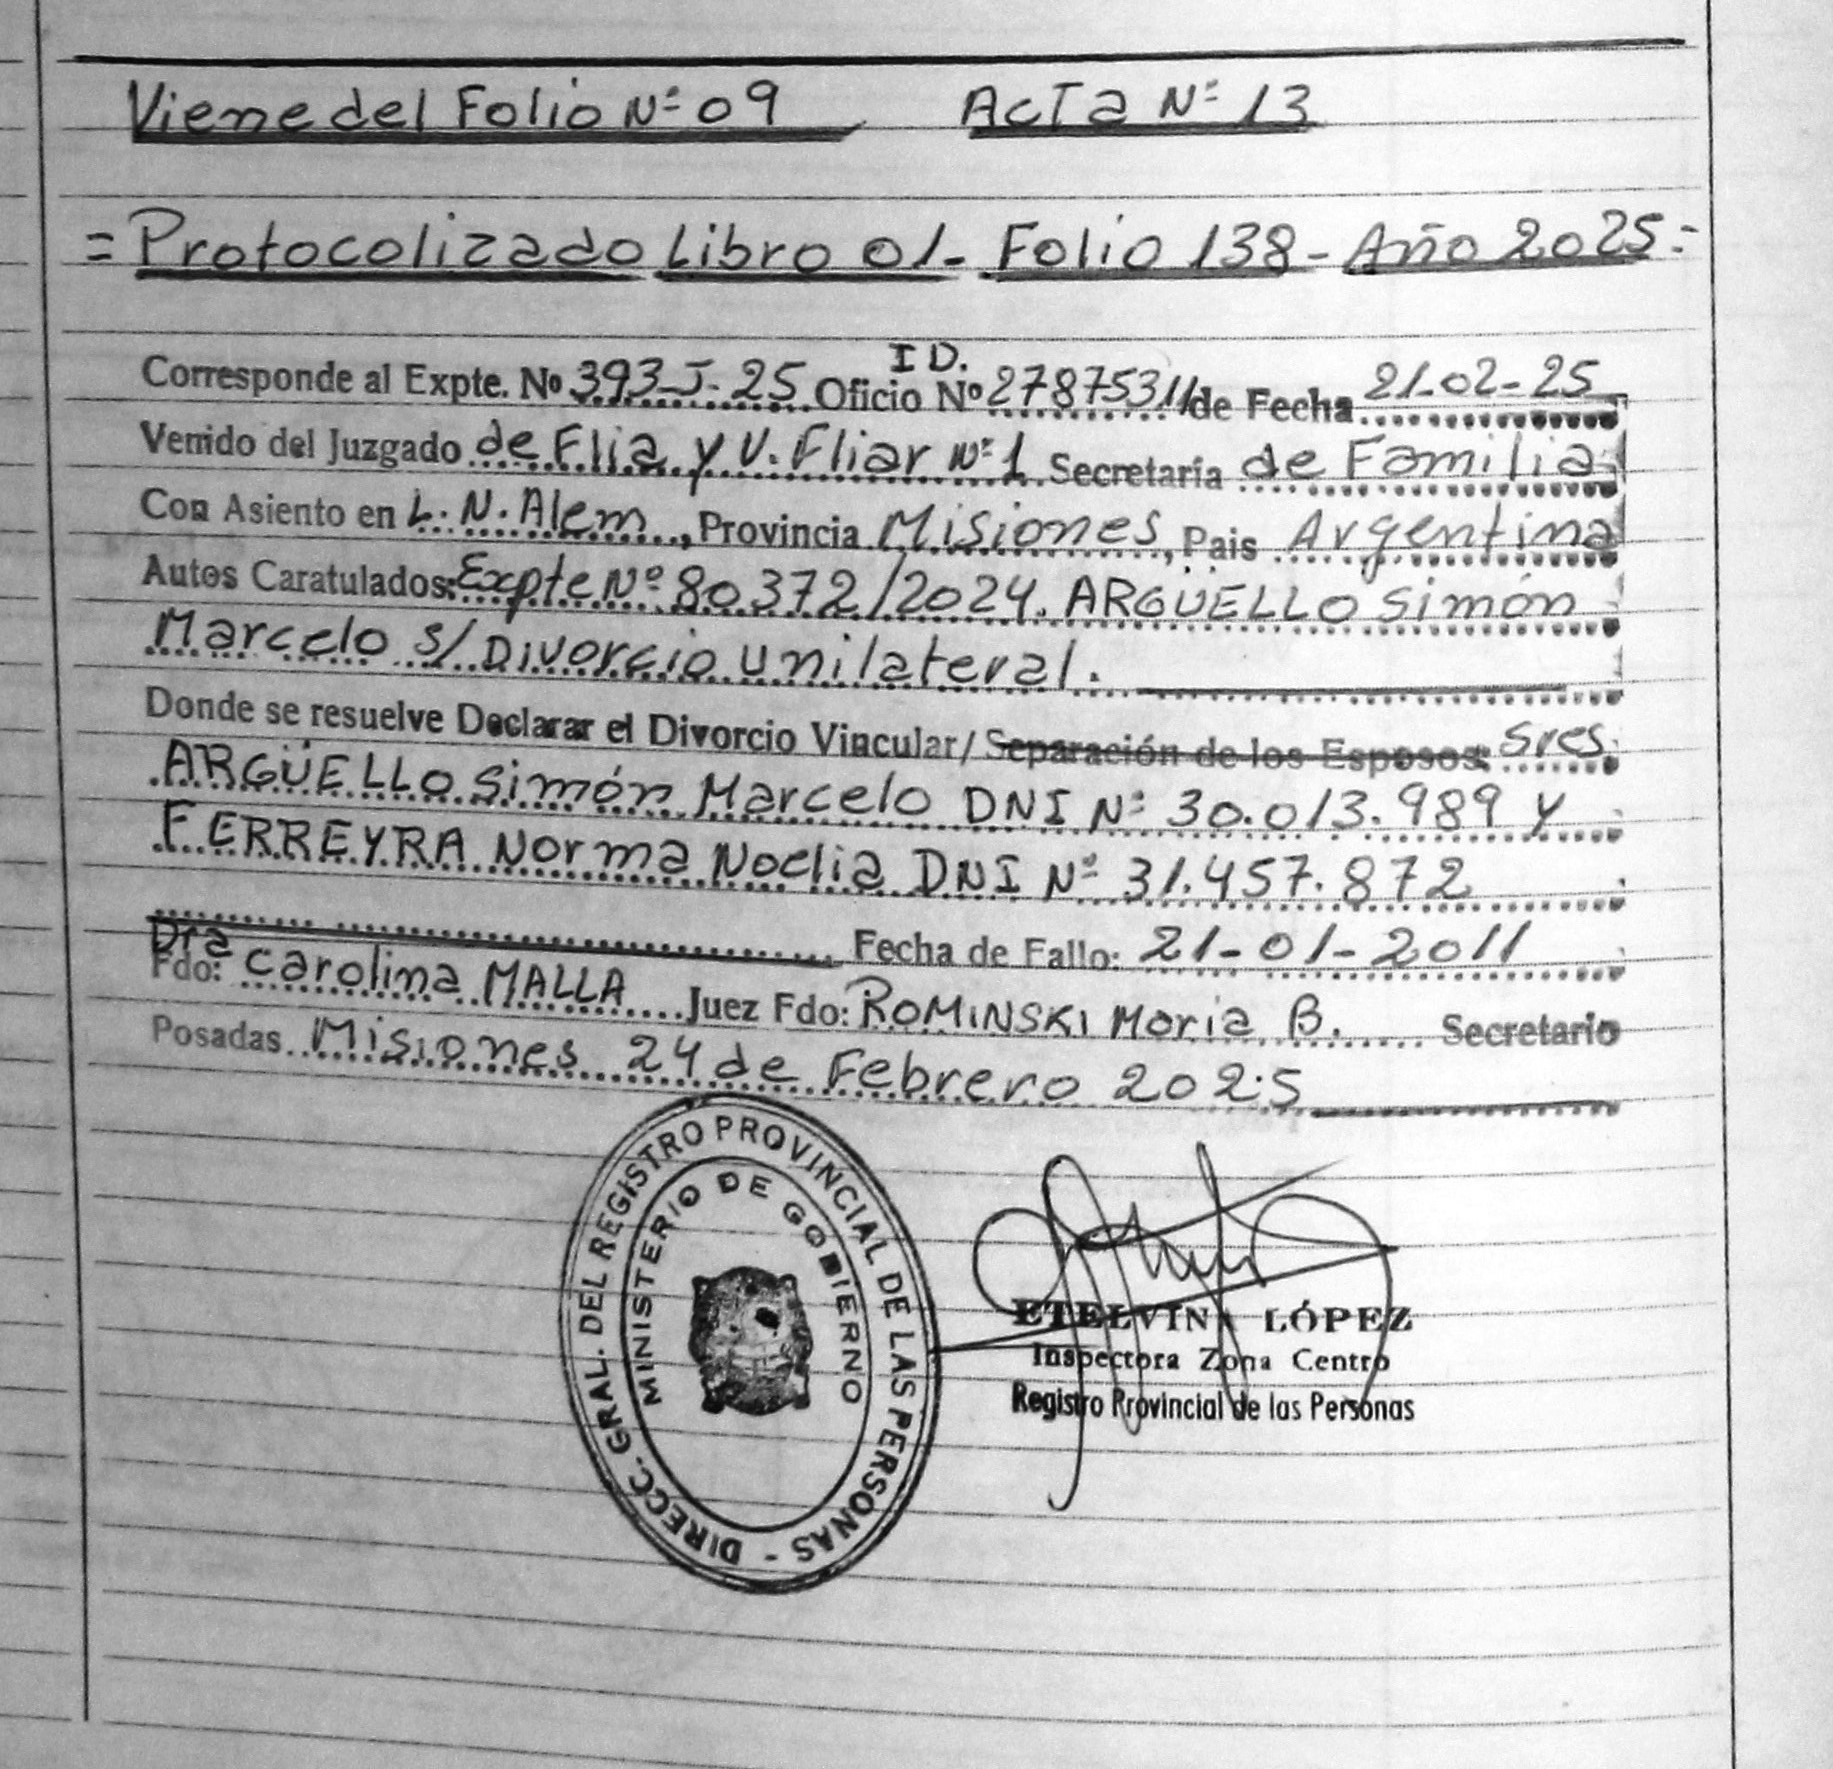 Viene del Folio Nº 09 Acta Nº 13
= Protocolizado Libro 01- Folio 138 - Año 2025 =
ID.
Corresponde al Expte. Nº 393-J-25 Oficio Nº 27875311 de Fecha 21-02-25
Venido del Juzgado de Flia y V. Fliar Nº 1 Secretaría de Familia
Con Asiento en L. N. Alem, Provincia Misiones, Pais Argentina
Autos Caratulados: Expte Nº 80372/2024. ARGÜELLO Simón
Marcelo s/ Divorcio unilateral.
Donde se resuelve Declarar el Divorcio Vincular/ Separación de los Esposos: Sres
ARGÜELLO Simón Marcelo DNI Nº 30.013.989 y
FERREYRA Norma Noelia DNI Nº 31.457.872
Fecha de Fallo: 21-01-2011
Dra
Fdo: Carolina MALLA Juez Fdo: ROMINSKI Moria B. Secretario
Posadas Misiones 24 de Febrero 2025
DIRECC. GRAL. DEL REGISTRO PROVINCIAL DE LAS PERSONAS -
MINISTERIO DE GOBIERNO
ETELVINA LÓPEZ
Inspectora Zona Centro
Registro Provincial de las Personas